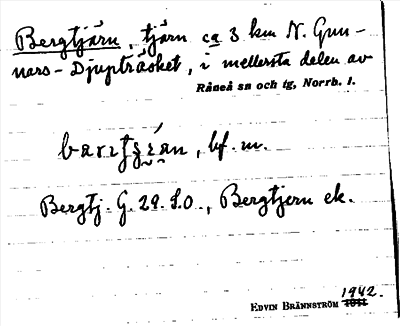 Bergtjärn, tjärn ca 3 km N. Gun-
nars-Djupträsket, i mellersta delen av
Råneå sn och tg, Norrb. l.
bf. m.
Bergtj. G. 29. S.O., Bergtjern ek.
1942.
EDVIN BRÄNNSTRÖM 1941